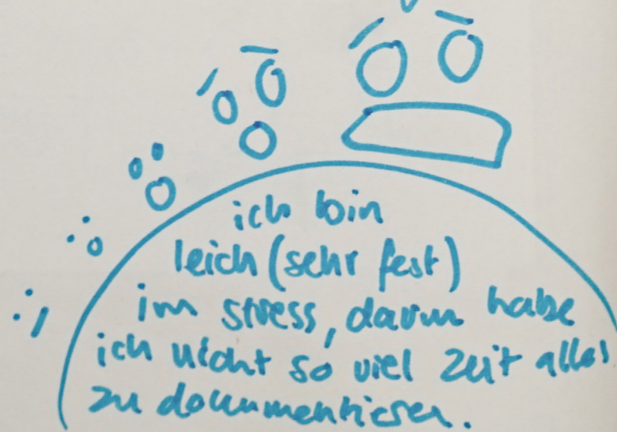 ich bin
leich (sehr fest)
im stress, darum habe
ich nicht so viel Zeit alles
zu dokumentieren.